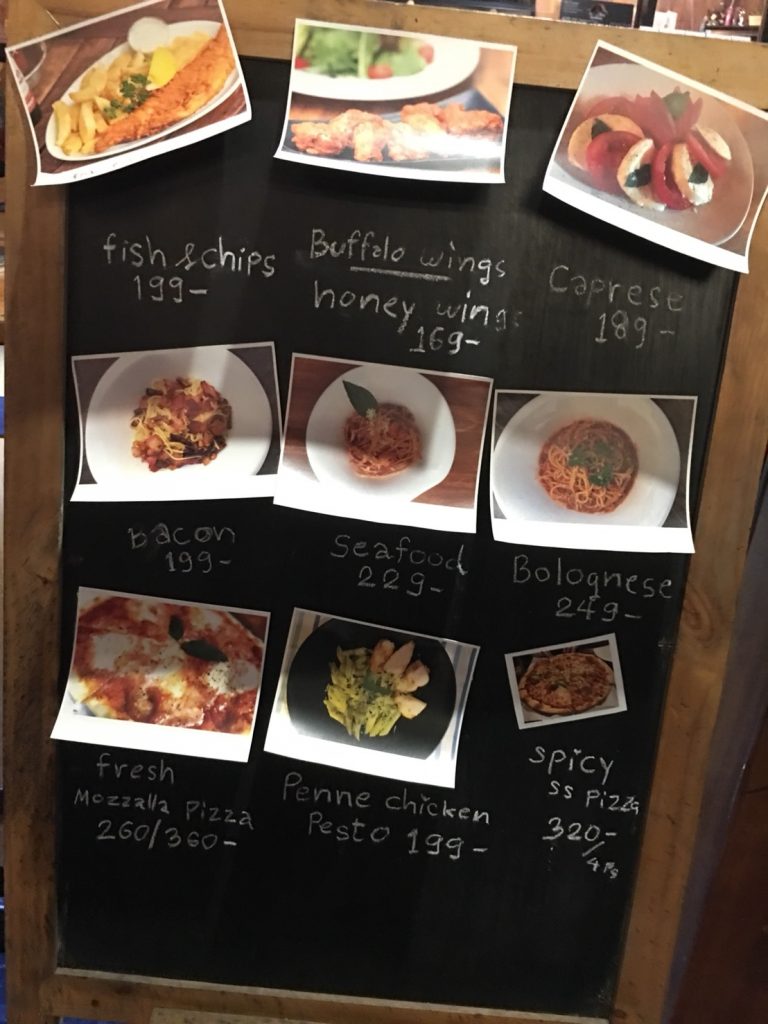 fish & chips
199-
Buffalo wings
honey wings
169-
Caprese
189-
Bacon
199-
Seafood
229-
Bolognese
249-
fresh
Mozzalla Pizza
260/360-
Penne chicken
Pesto 199-
spicy
ss Pizza
320-